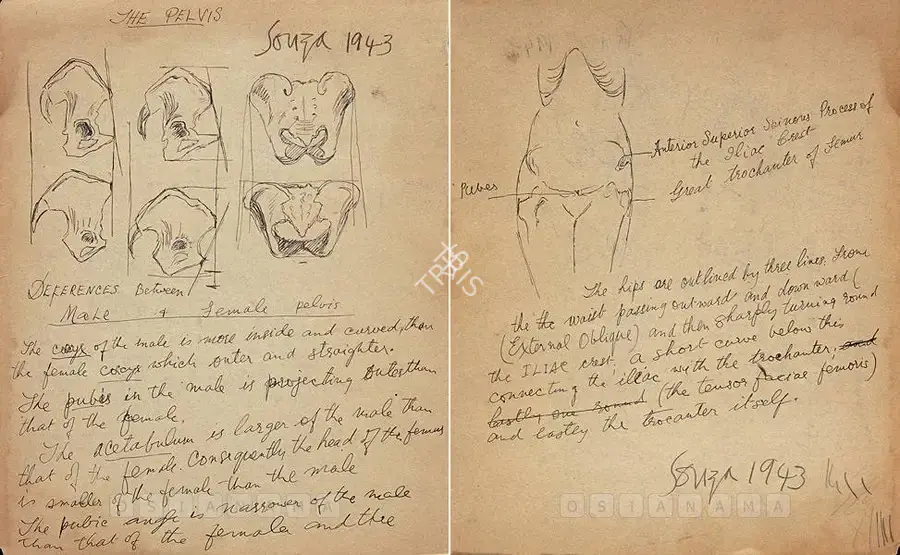 THE PELVIS
Souza 1943
DEFERENCES Between
Male & Female pelvis
The cocyx of the male is more inside and curved, than
the female cocyx which outer and straighter.
The pubes in the male is projecting than
that of the female.
The acetabulum is larger of the male than
that of the female. Consequently the head of the femur
is smaller of the female than the male
The pubic angle is narrower of the male
than that of the female and the
Anterior Superior Spinous Process of
the Iliac Crest
Great trochanter of Femur
Pubes
The hips are outlined by three lines. From
the the waist passing outward and downward (
(External Oblique) and then sharply turning round
the ILIAC crest; A short curve below this
connecting the iliac with the trochanter; and
lastly one round (the tensor faciae femoris)
and lastly the trocanter itself.
Souza 1943
OSIANAMA
OSIANAMA